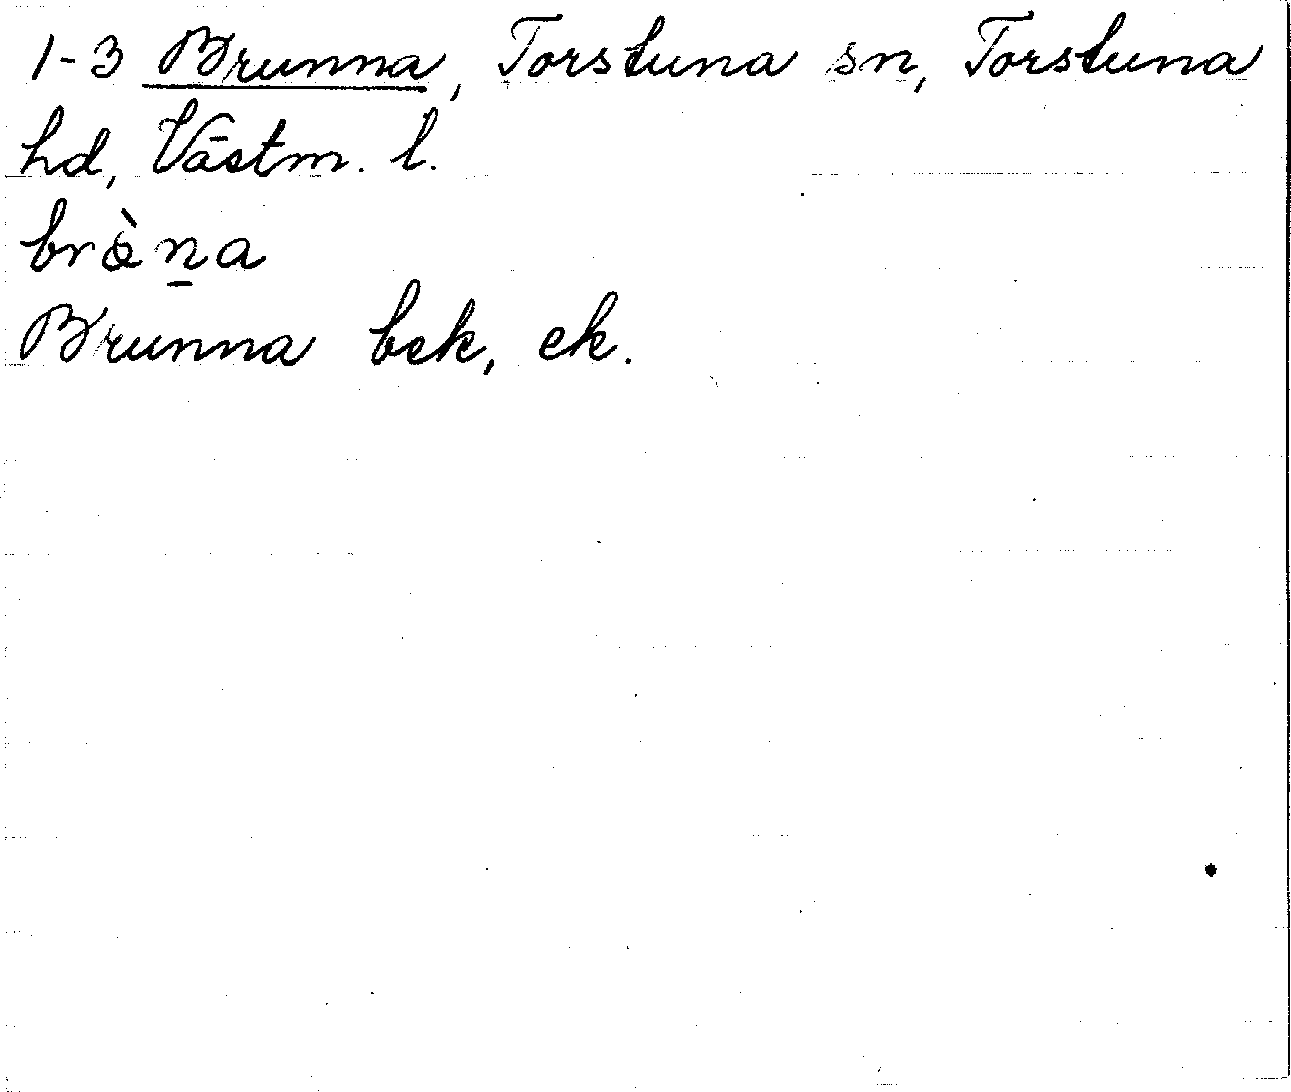 1-3 Brunna, Torstuna sn, Torstuna
hd, Västm. l.
bròṉa
Brunna bek, ek.